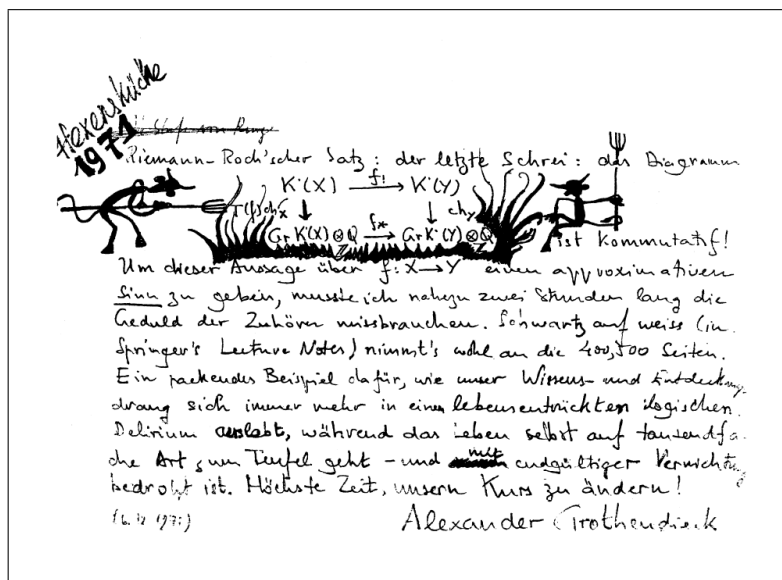 Hexenküche
1971
Riemann-Roch'scher Satz: der letzte Schrei: das Diagramm
K˙(X) f! K˙(Y)
T(f)chx chy
Gr K˙(X) ⊗ Q f* Gr K˙(Y) ⊗ Q
Z Z
ist kommutatif!
Um dieser Aussage über f: X → Y einen approximativen
Sinn zu geben, musste ich nahezu zwei Stunden lang die
Geduld der Zuhörer missbrauchen. Schwartz auf weiss (in
Springer's Lecture Notes) nimmt's wohl an die 400, 500 Seiten.
Ein packendes Beispiel dafür, wie unser Wissens- und Entdeckungs-
drang sich immer mehr in einem lebensentrückten logischen
Delirium auslebt, während das Leben selbst auf tausendfa-
che Art zum Teufel geht - und mit endgültiger Vernichtung
bedroht ist. Höchste Zeit, unsern Kurs zu ändern!
Alexander Grothendieck